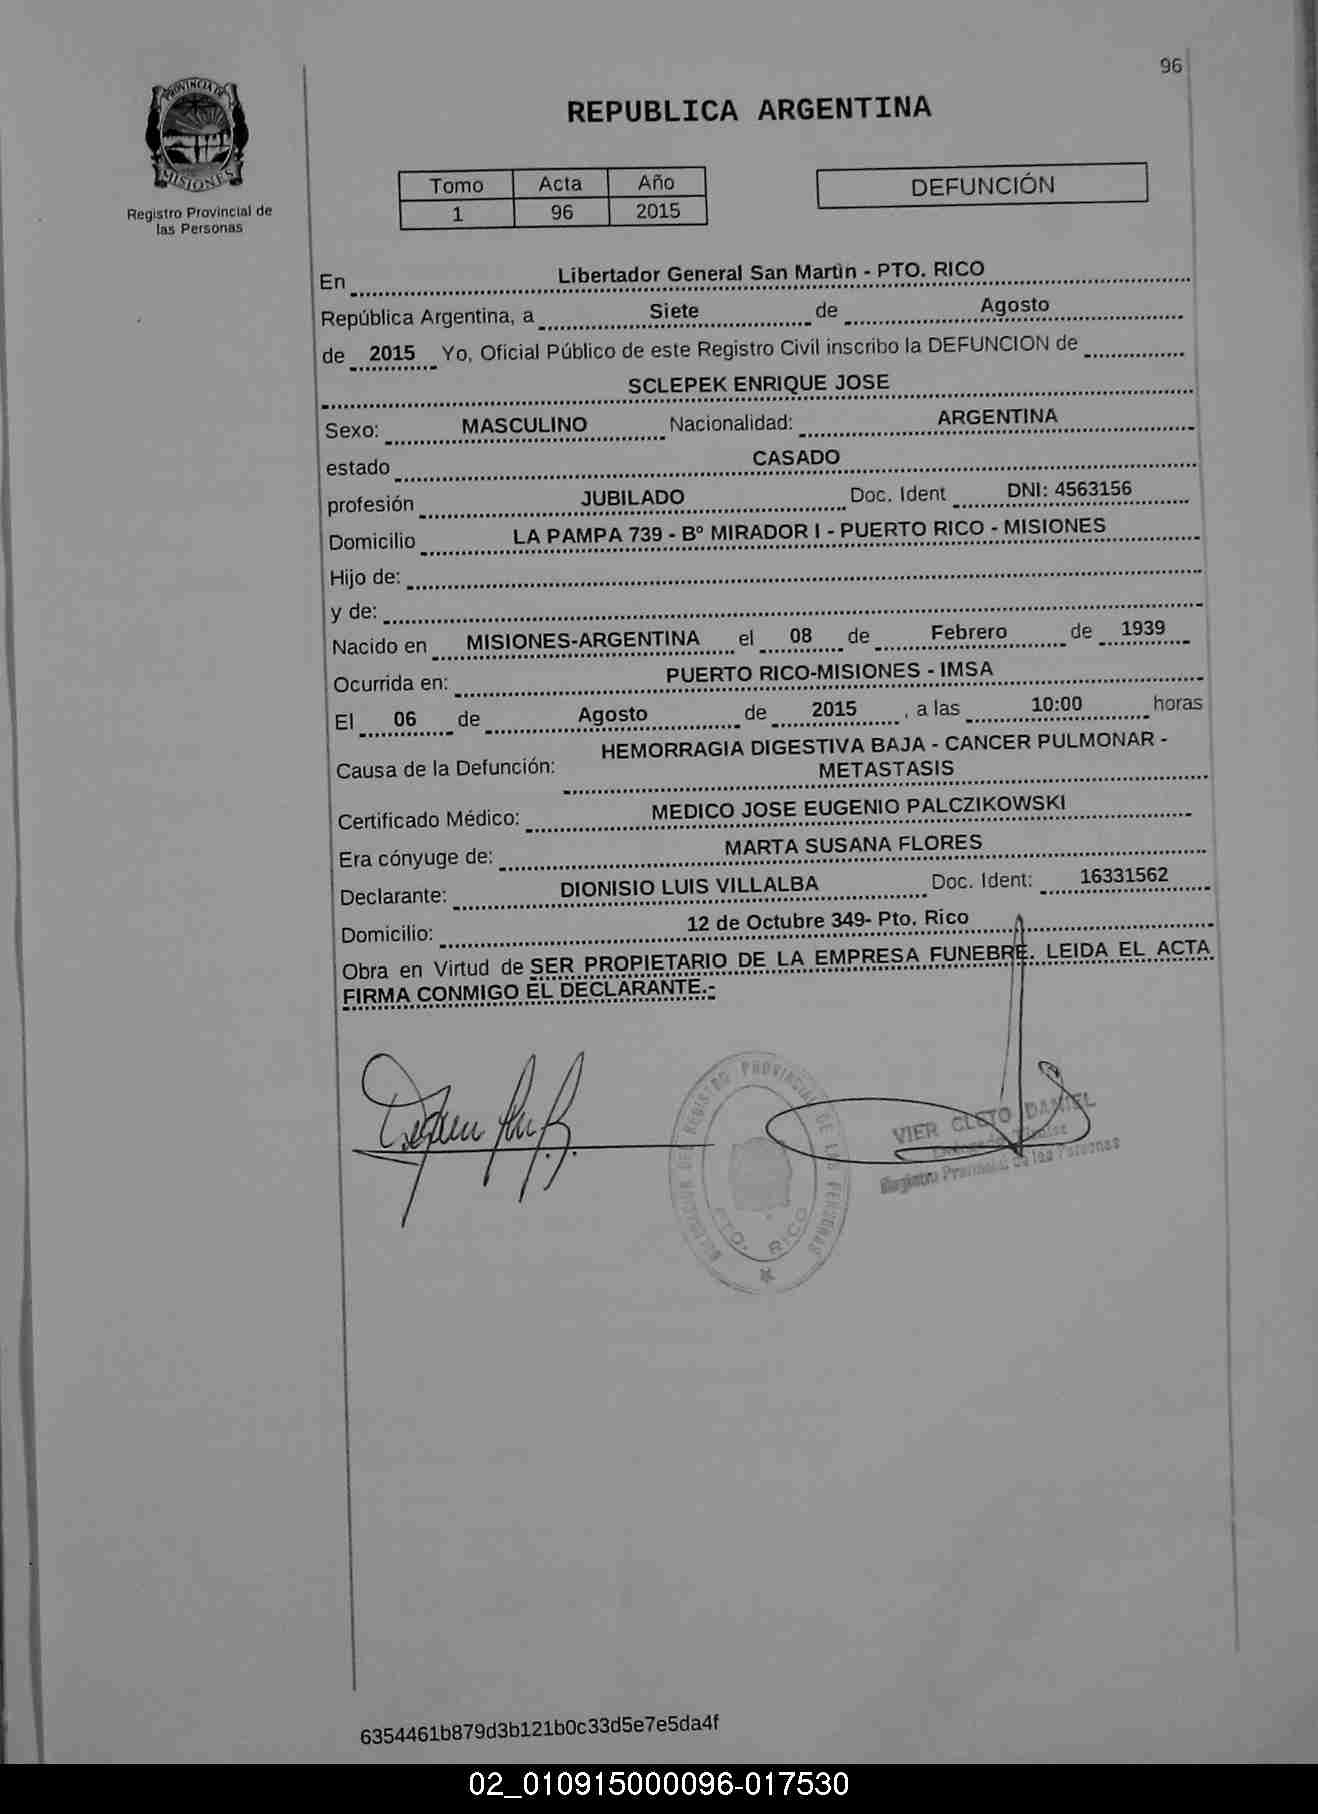 96
PROVINCIA DE
MISIONES
Registro Provincial de
las Personas
REPUBLICA ARGENTINA
Tomo Acta Año
1 96 2015
DEFUNCIÓN
En Libertador General San Martin - PTO. RICO
República Argentina, a Siete de Agosto
de 2015 Yo, Oficial Público de este Registro Civil inscribo la DEFUNCION de
SCLEPEK ENRIQUE JOSE
Sexo: MASCULINO Nacionalidad: ARGENTINA
estado CASADO
profesión JUBILADO Doc. Ident DNI: 4563156
Domicilio LA PAMPA 739 - Bº MIRADOR I - PUERTO RICO - MISIONES
Hijo de:
y de:
Nacido en MISIONES-ARGENTINA el 08 de Febrero de 1939
Ocurrida en: PUERTO RICO-MISIONES - IMSA
El 06 de Agosto de 2015 , a las 10:00 horas
Causa de la Defunción: HEMORRAGIA DIGESTIVA BAJA - CANCER PULMONAR -
METASTASIS
Certificado Médico: MEDICO JOSE EUGENIO PALCZIKOWSKI
Era cónyuge de: MARTA SUSANA FLORES
Declarante: DIONISIO LUIS VILLALBA Doc. Ident: 16331562
Domicilio: 12 de Octubre 349- Pto. Rico
Obra en Virtud de SER PROPIETARIO DE LA EMPRESA FUNEBRE. LEIDA EL ACTA
FIRMA CONMIGO EL DECLARANTE.-
DEL REGISTRO PROVINCIAL DE LAS PERSONAS
PTO. RICO
VIER CLETO DANIEL
Registro Provincial de las Personas
6354461b879d3b121b0c33d5e7e5da4f
02_010915000096-017530